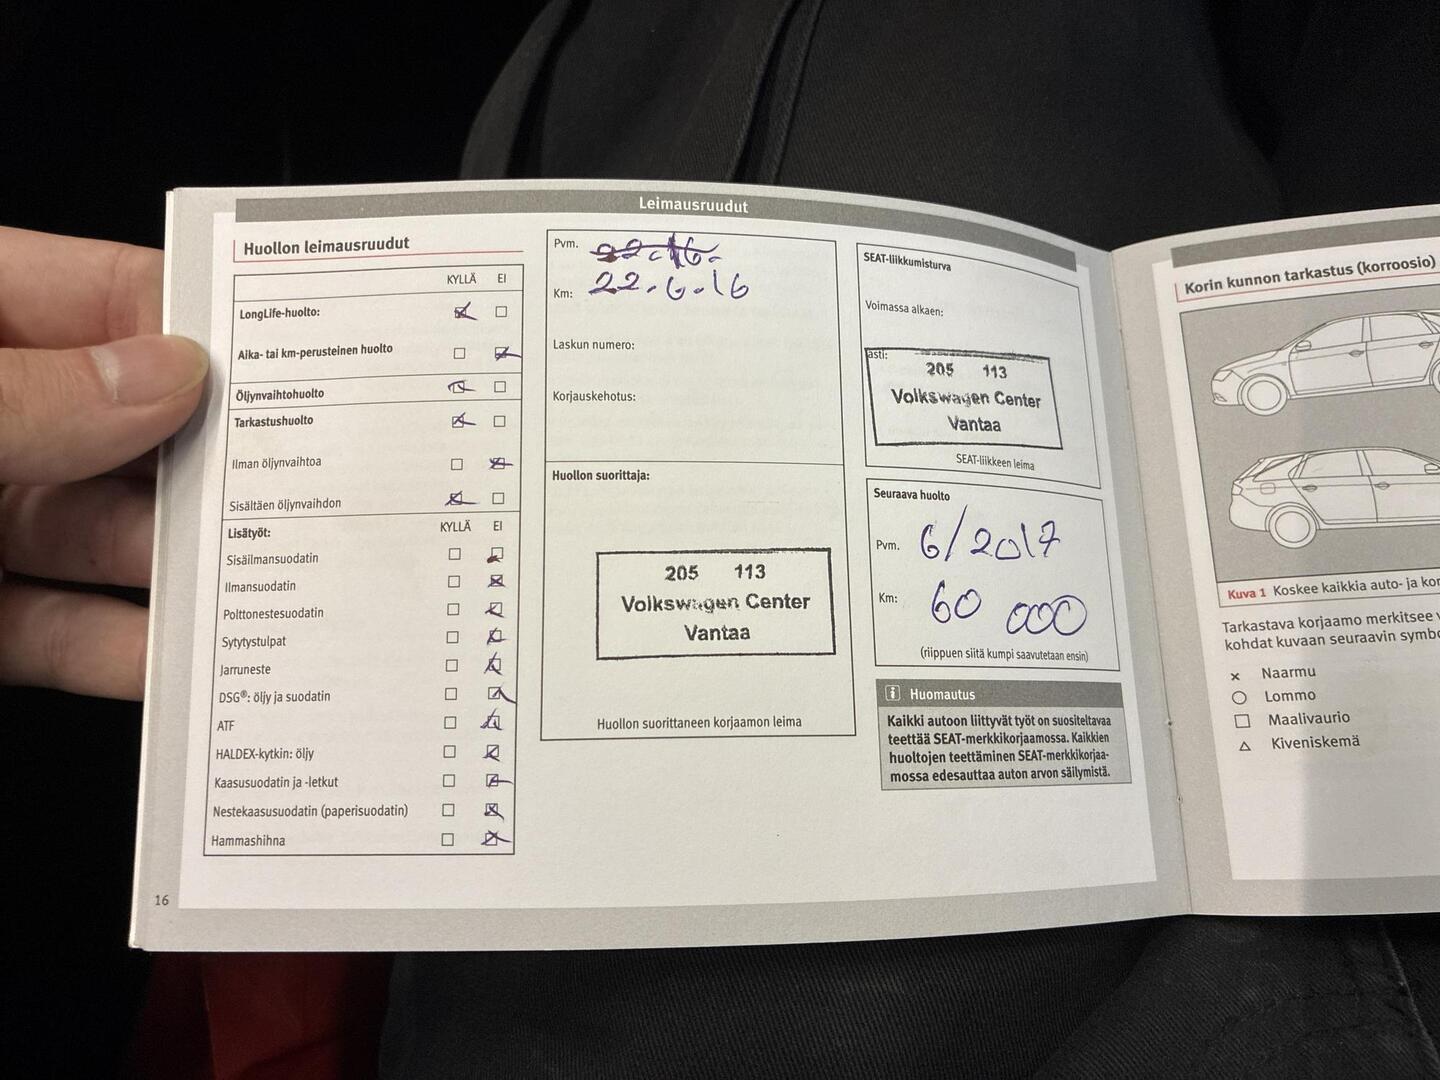 Leimausruudut
Huollon leimausruudut
KYLLÄ EI
LongLife-huolto:
Aika- tai km-perusteinen huolto
Öljynvaihtohuolto
Tarkastushuolto
Ilman öljynvaihtoa
Sisältäen öljynvaihdon
Lisätyöt: KYLLÄ EI
Sisäilmansuodatin
Ilmansuodatin
Polttonestesuodatin
Sytytystulpat
Jarruneste
DSG®: öljy ja suodatin
ATF
HALDEX-kytkin: öljy
Kaasusuodatin ja -letkut
Nestekaasusuodatin (paperisuodatin)
Hammashihna
16
Pvm. 22.16.
Km: 22.6.16
Laskun numero:
Korjauskehotus:
Huollon suorittaja:
205 113
Volkswagen Center
Vantaa
Huollon suorittaneen korjaamon leima
SEAT-liikkumisturva
Voimassa alkaen:
asti:
205 113
Volkswagen Center
Vantaa
SEAT-liikkeen leima
Seuraava huolto
Pvm. 6/2017
Km: 60 000
(riippuen siitä kumpi saavutetaan ensin)
i Huomautus
Kaikki autoon liittyvät työt on suositeltavaa
teettää SEAT-merkkikorjaamossa. Kaikkien
huoltojen teettäminen SEAT-merkkikorjaa-
mossa edesauttaa auton arvon säilymistä.
Korin kunnon tarkastus (korroosio)
Kuva 1 Koskee kaikkia auto- ja kor
Tarkastava korjaamo merkitsee v
kohdat kuvaan seuraavin symbo
Naarmu
Lommo
Maalivaurio
Kiveniskemä